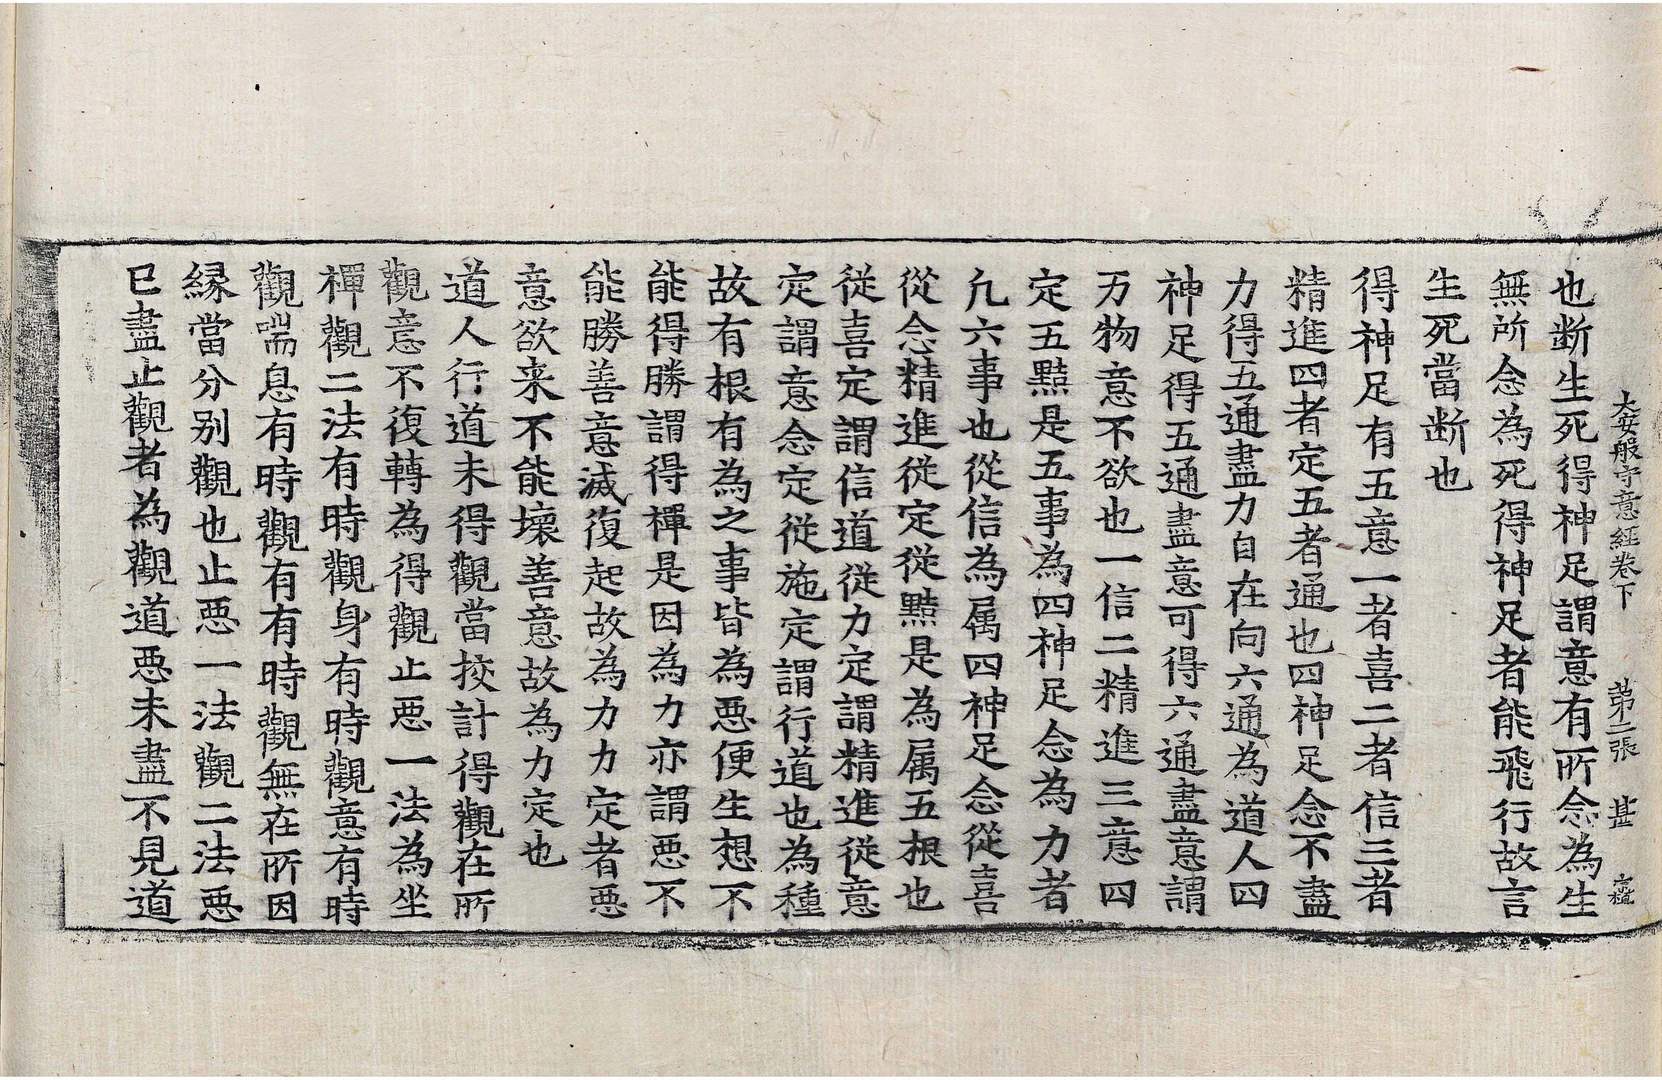 大安般守意經卷下 第二張 甚
也斷生死得神足謂意有所念為生
無所念為死得神足者能飛行故言
生死當断也
得神足有五意一者喜二者信三者
精進四者定五者通也四神足念不盡
力得五通盡力自在向六通為道人四
神足得五通盡意可得六通盡意謂
万物意不欲也一信二精進三意四
定五黠是五事為四神足念為力者
凢六事也從信為属四神足念從喜
從念精進從定從黠是為属五根也
從喜定謂信道從力定謂精進從意
定謂意念定從施定謂行道也為種
故有根有為之事皆為惡便生想不
能得勝謂得禪是因為力亦謂惡不
能勝善意滅復起故為力力定者惡
意欲来不能壞善意故為力定也
道人行道未得觀當挍計得觀在所
觀意不復轉為得觀止惡一法為坐
禪觀二法有時觀身有時觀意有時
觀喘息有時觀有有時觀無在所因
縁當分别觀也止惡一法觀二法惡
已盡止觀者為觀道惡未盡不見道